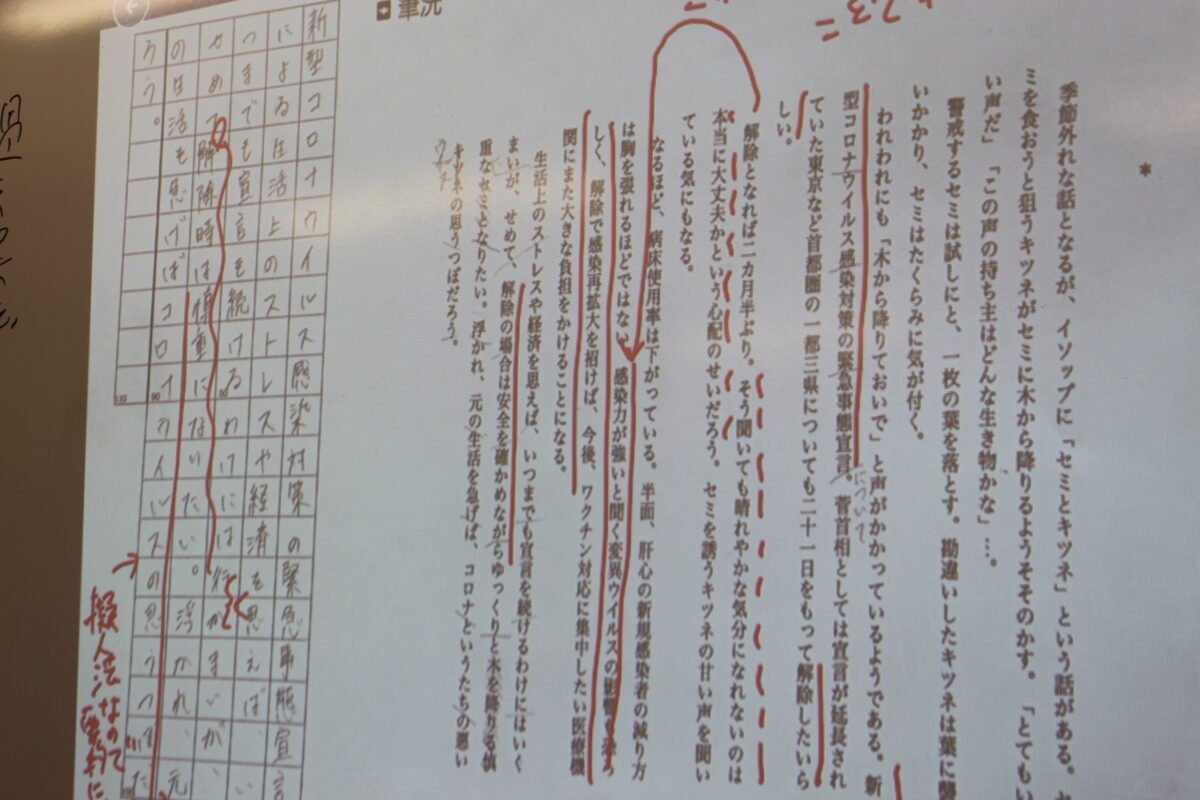 筆洗
＊
季節外れな話となるが、イソップに「セミとキツネ」という話がある。セ
ミを食おうと狙うキツネがセミに木から降りるようそそのかす。「とてもい
い声だ」「この声の持ち主はどんな生き物かな」…。
警戒するセミは試しにと、一枚の葉を落とす。勘違いしたキツネは葉に襲
いかかり、セミはたくらみに気が付く。
われわれにも「木から降りておいで」と声がかかっているようである。新
型コロナウイルス感染対策の緊急事態宣言。菅首相としては宣言が延長され
ていた東京など首都圏の一都三県についても二十一日をもって解除したいら
しい。
解除となれば二カ月半ぶり。そう聞いても晴れやかな気分になれないのは
本当に大丈夫かという心配のせいだろう。セミを誘うキツネの甘い声を聞い
ている気にもなる。
なるほど、病床使用率は下がっている。半面、肝心の新規感染者の減り方
は胸を張れるほどではない。感染力が強いと聞く変異ウイルスの影響も
しく、解除で感染再拡大を招けば、今後、ワクチン対応に集中したい医療機
関にまた大きな負担をかけることになる。
生活上のストレスや経済を思えば、いつまでも宣言を続けるわけにはいく
まいが、せめて、解除の場合は安全を確かめながらゆっくりと木を降りる慎
重なセミとなりたい。浮かれ、元の生活を急げば、コロナというたちの悪い
キツネの思うつぼだろう。
について
ウイルス
新型コロナウイルス感染対策の緊急事態宣言
による生活上のストレスや経済を思えば、い
つまでも宣言を続けるわけには行かまいが、
やめて解除時は慎重になりたい。浮かれ、元
の生活を急げばコロナウイルスの思うつぼだ
ろう。
擬人法なので
要約に